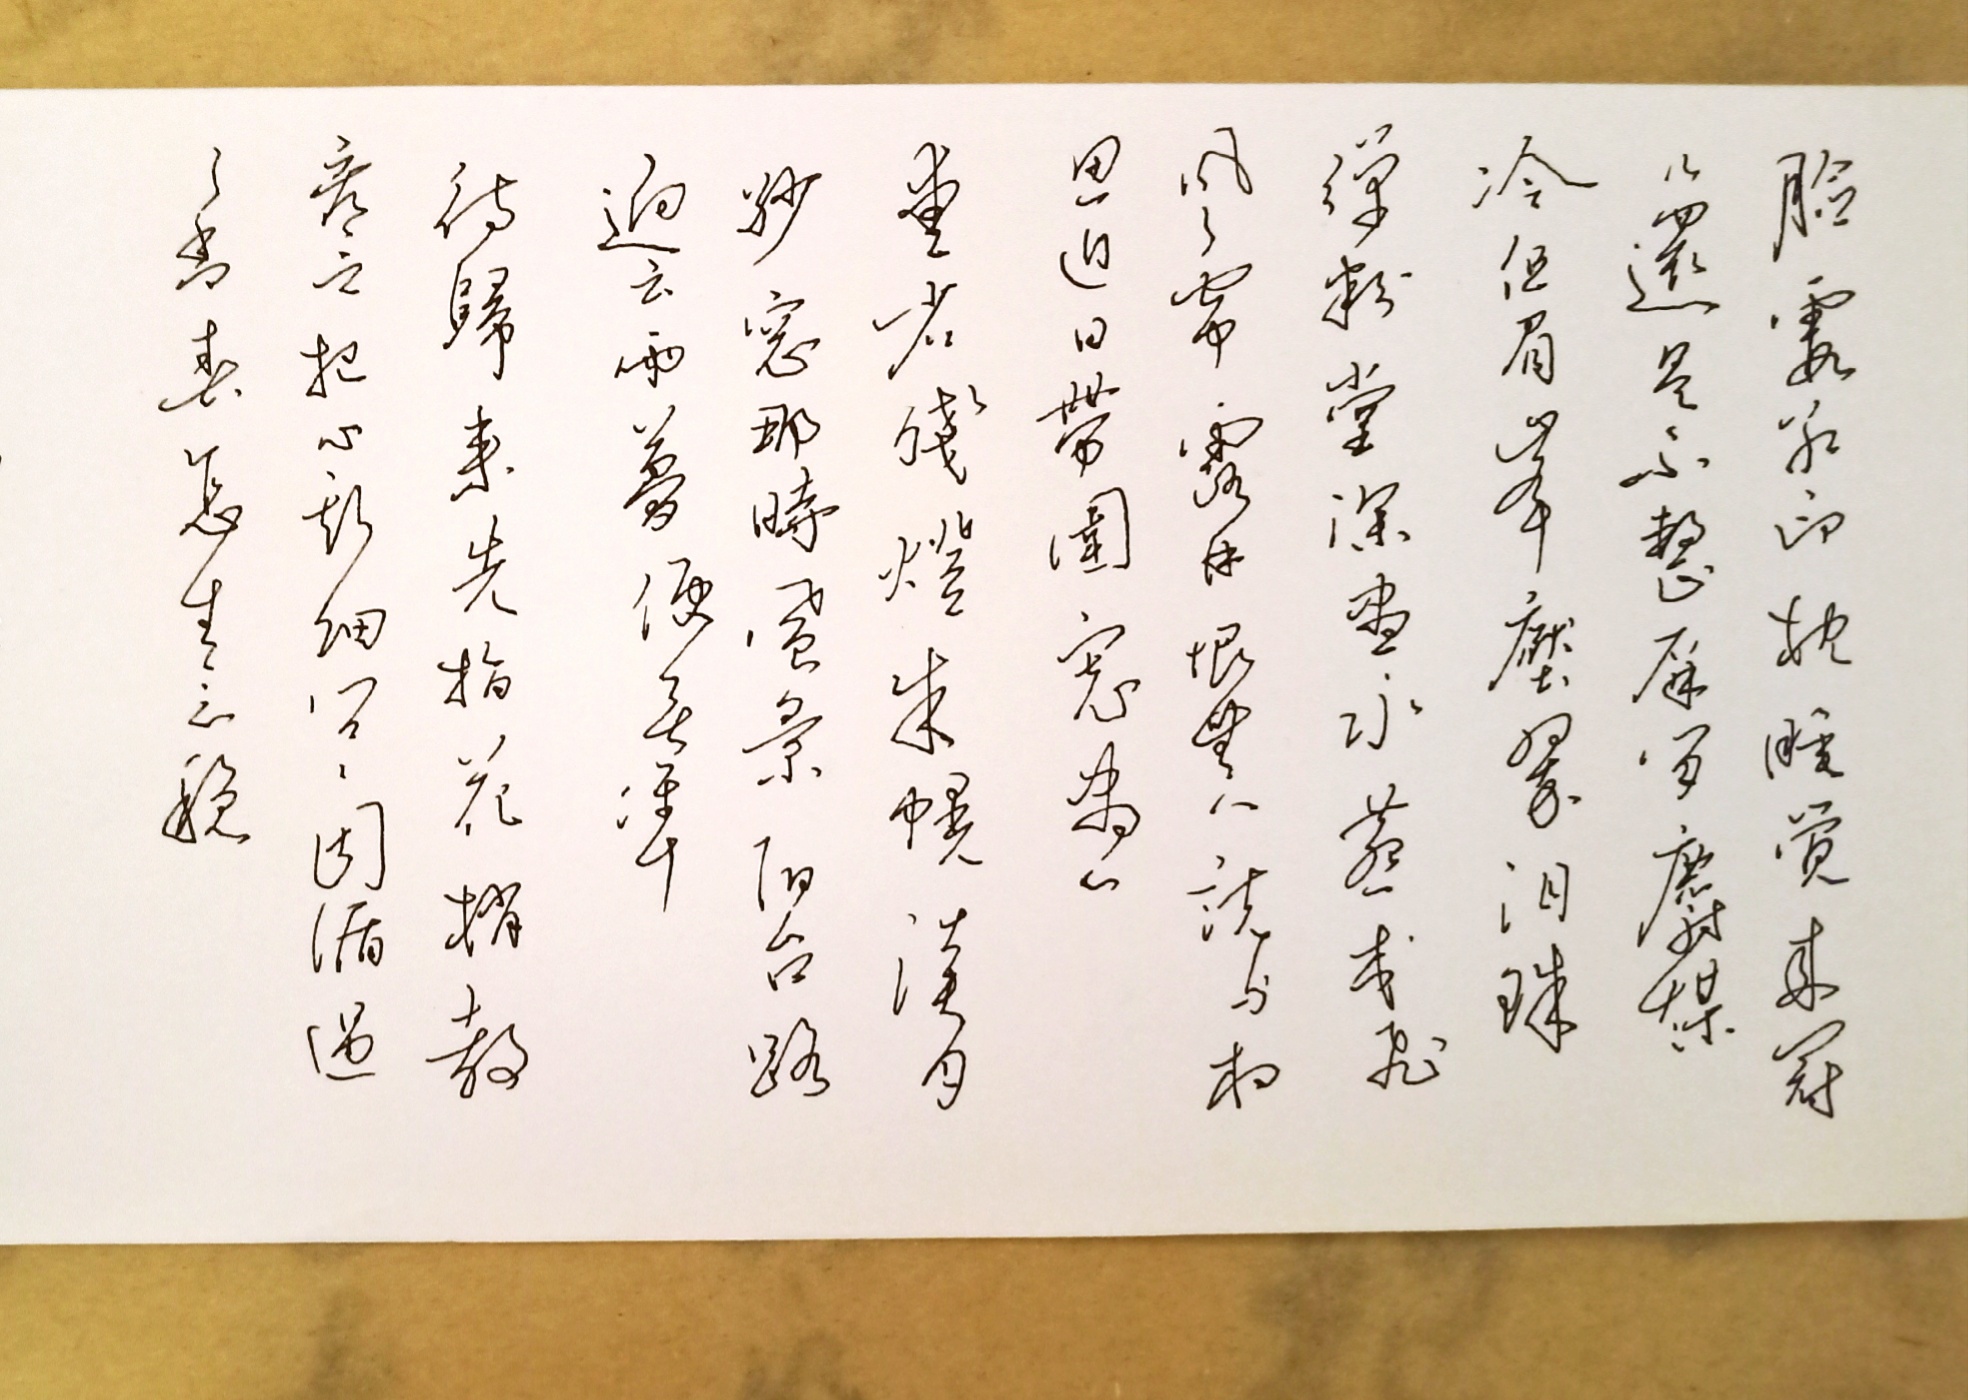 臉霞紅印枕睡覺來冠
兒還是不整屏間麝煤
冷但眉峰壓翠泪珠
彈粉堂深晝永燕交飛
風帘露井恨無人說与相
思近日帶圍寬盡
重省殘燈朱幌淡月
紗窗那時風景陽台路
迥云雨夢便無準
待歸來先指花梢教
看却把心期細問〻因循過
了青春怎生意穩